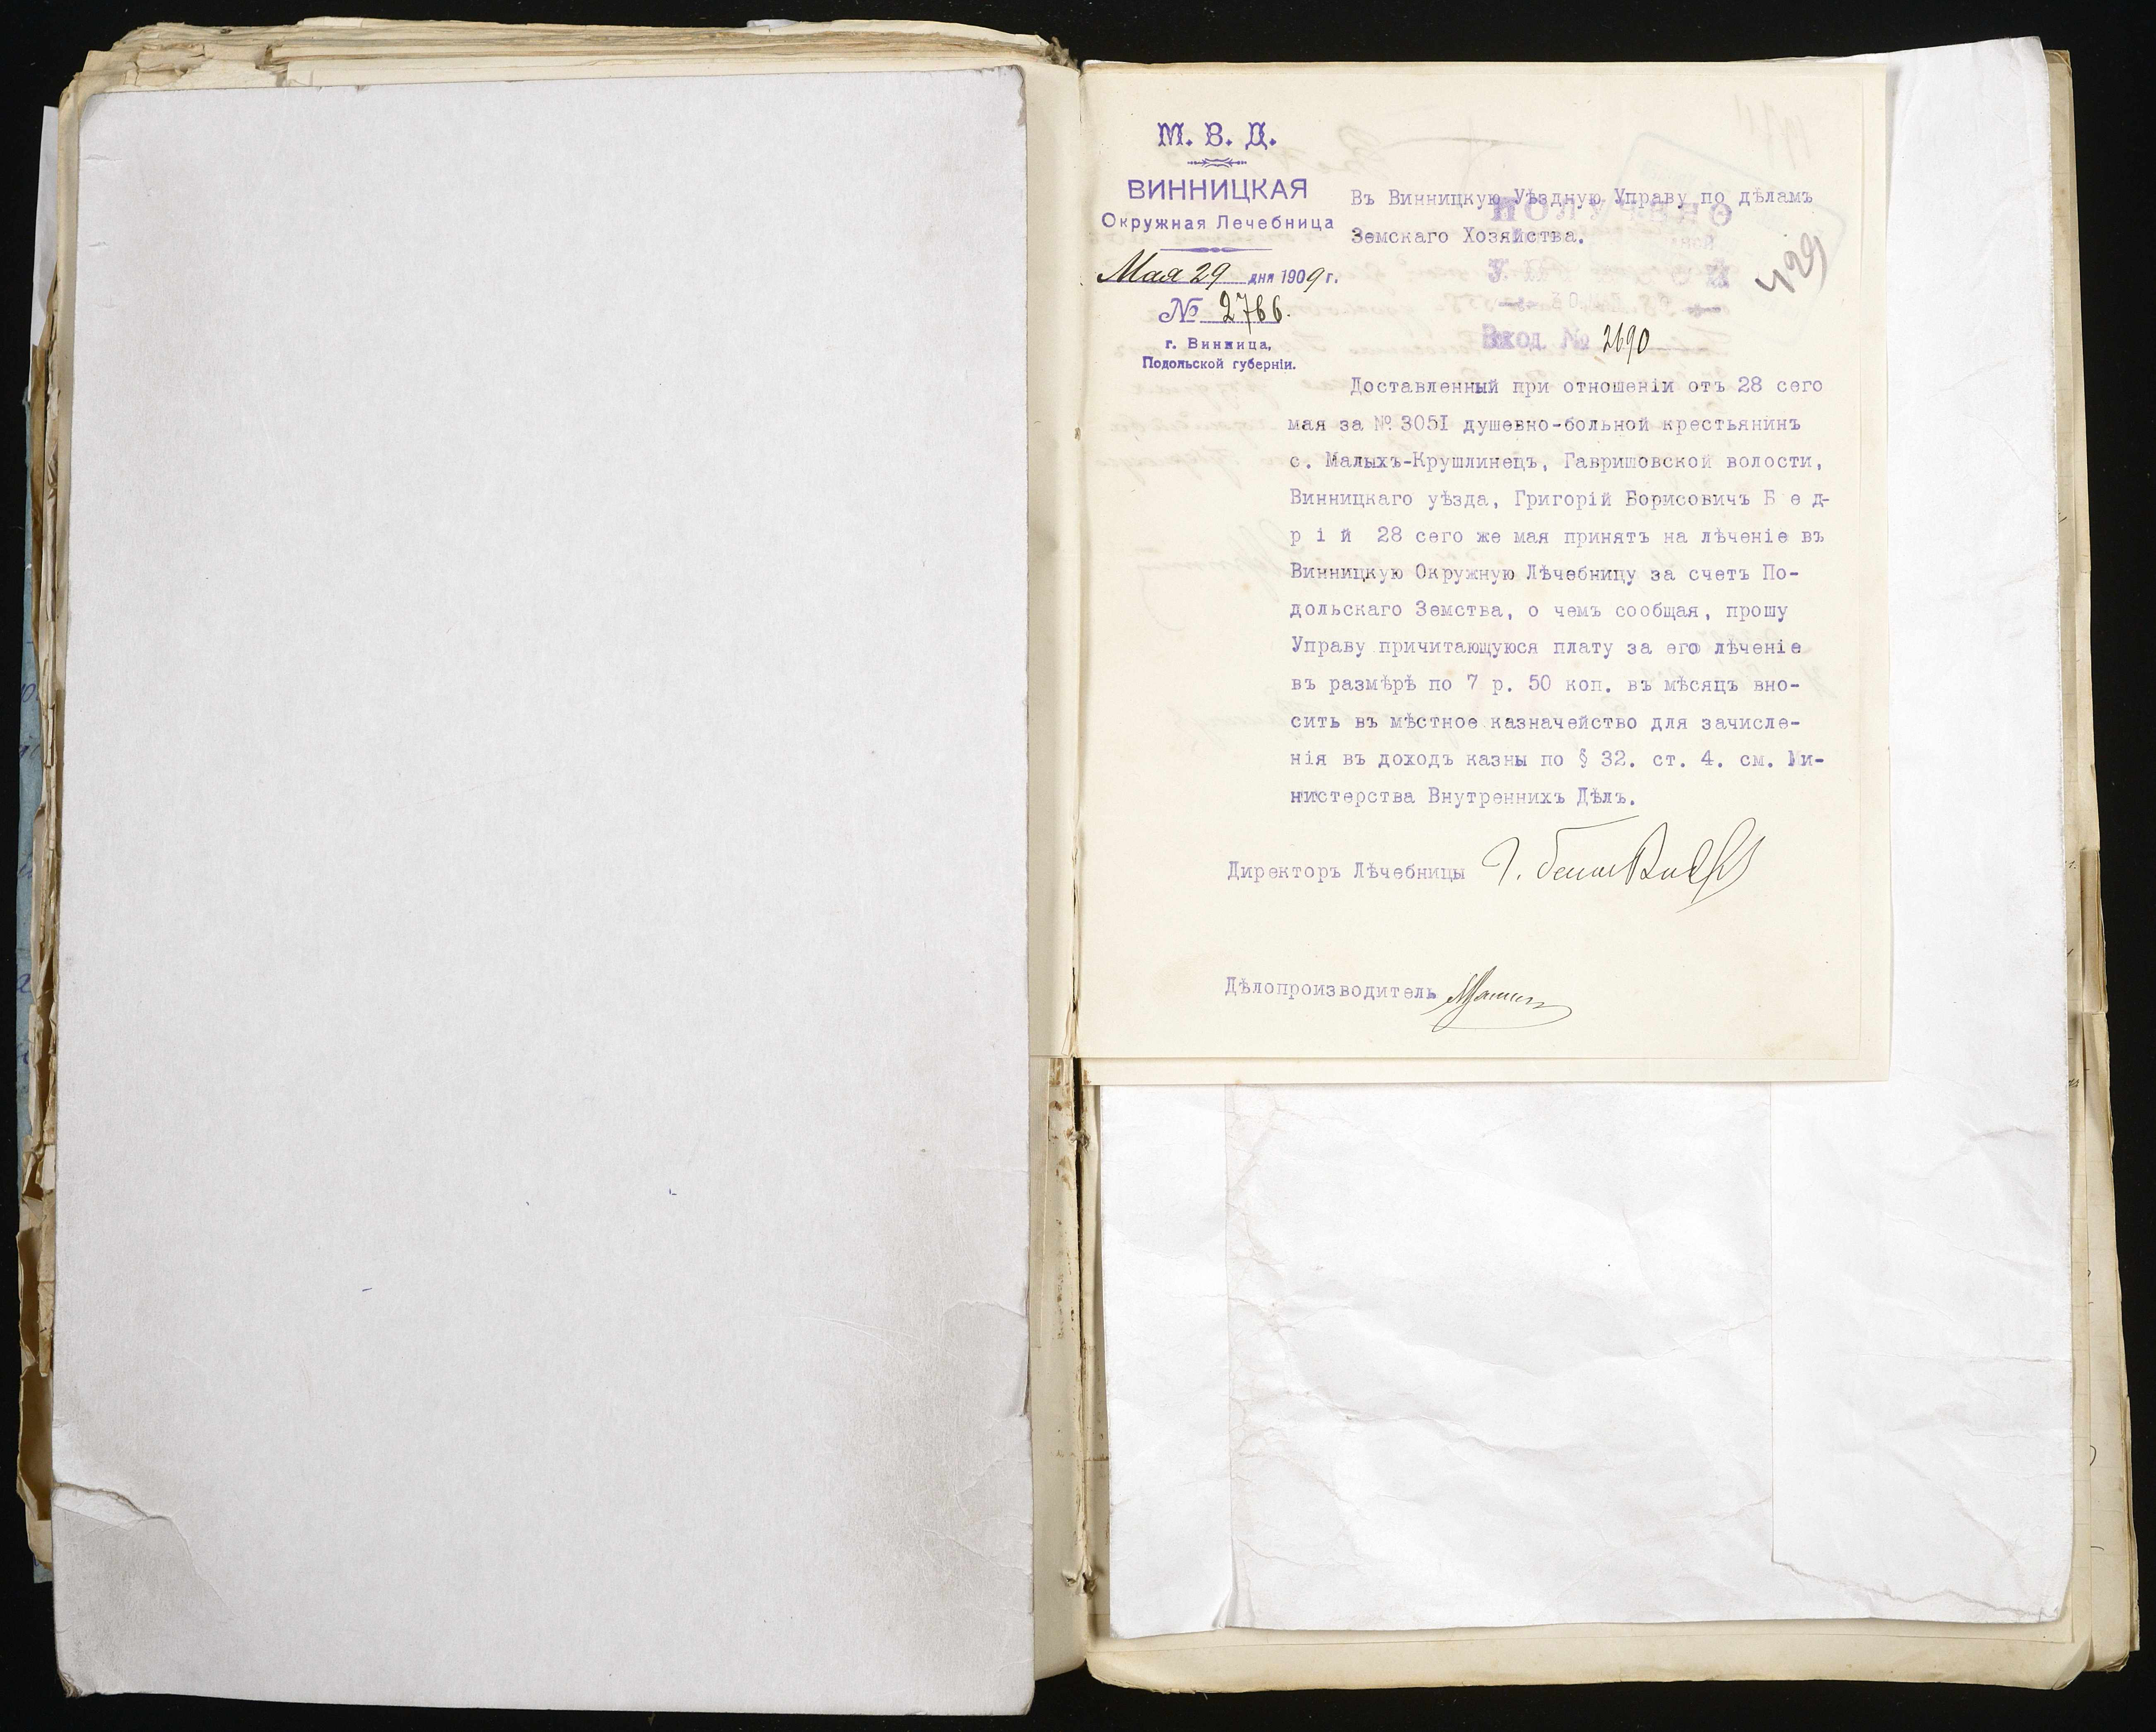 М. В. Д.
ВИННИЦКАЯ
Окружная Лечебница
Мая 29 дня 1909 г.
№ 2766.
г. Винница,
Подольской губернiи.
Въ Винницкую Уѣздную Управу по дѣламъ
Земскаго Хозяйства.
ПОЛУЧЕНО
429
Вход. № 2690
Доставленный при отношенiи отъ 28 сего
мая за № 3051 душевно-больной крестьянинъ
с. Малыхъ-Крушлинецъ, Гавришовской волости,
Винницкаго уѣзда, Григорiй Борисовичъ Б е д-
р i й 28 сего же мая принятъ на лѣченiе въ
Винницкую Окружную Лѣчебницу за счетъ По-
дольскаго Земства, о чемъ сообщая, прошу
Управу причитающуюся плату за его лѣченiе
въ размѣрѣ по 7 р. 50 коп. въ мѣсяцъ вно-
сить въ мѣстное казначейство для зачисле-
нiя въ доходъ казны по § 32. ст. 4. см. Ми-
нистерства Внутреннихъ Дѣлъ.
Директоръ Лѣчебницы
Дѣлопроизводитель